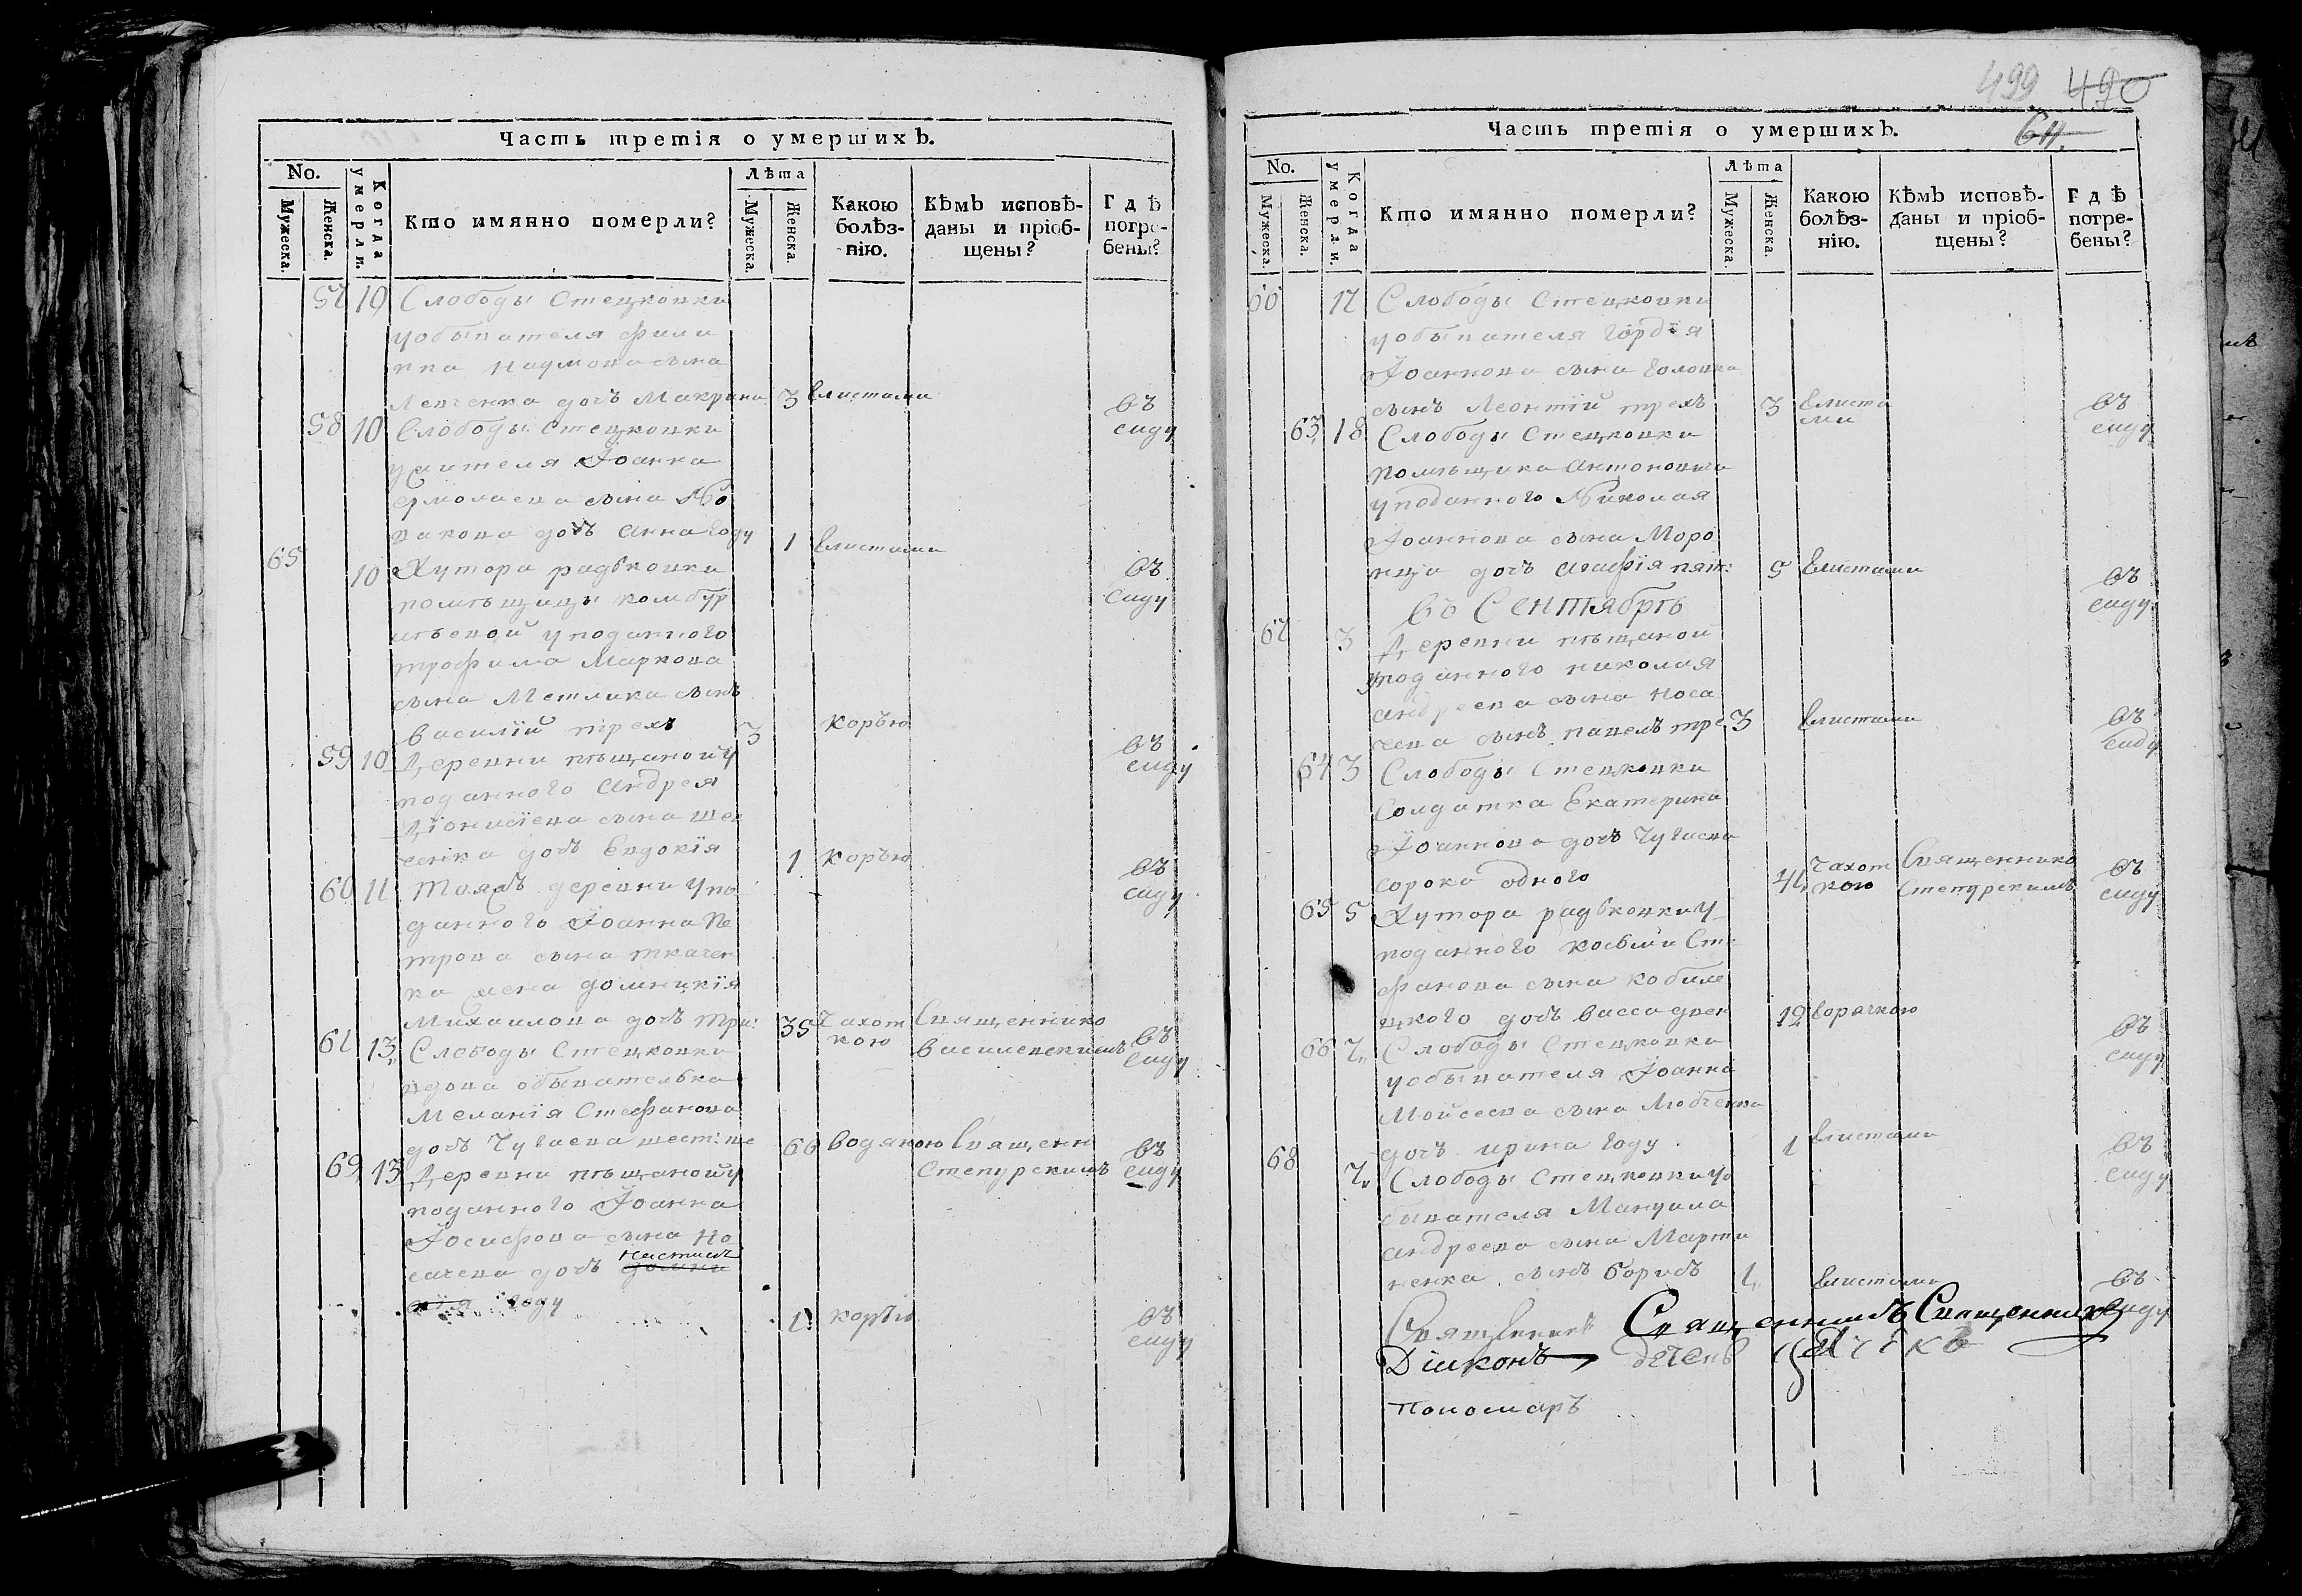 Часть третія о умершихъ.
No.
Мужеска.
Женска.
Когда умерли.
Кто имянно померли?
Лѣта
Мужеска.
Женска.
Какою болѣз-
нію.
Кѣмъ исповѣ-
даны и пріоб-
щены?
Гдѣ
погре-
бены?
57 10 Слободы Стецковки
уобывателя Фили
ппа Наумова сына
Левченка дочь Макрина 3 Глистами въ
саду
58 10 Слободы Стецковки
учителя Іоанна
Ермолаева сына Но
вакова дочь Анна году 1 Глистами
65 10 Хутора радьковки въ
помѣщицы Комбур саду
лѣевой уподанного
трофима Маркова
сына Метлика сынъ
василій трехъ 3 корью въ
59 10 Деревни пѣщаной у саду
поданного Андрея
Діонисіева сына Шев
ченка дочь Евдокія 1 корью въ
60 11 Тояжъ деревни упо саду
данного Іоанна Пе
трова сына ткачен
ка жена домникія
Михаилова дочь три: 35 Чахот Священнико въ
61 13 Слободы Стецковки кою василевскимъ саду
вдова обывателька
Меланія Стефанова
дочь Чугаева шест: 60 водяною Священн въ
62 13 Деревни пѣщаной у Степурскимъ саду
поданного Іоанна
Іосифова сына Но
Настасія
сачева дочь домни
кія году 1 корью въ
саду
499 490
Часть третія о умершихъ. 64.
No.
Мужеска.
Женска.
Когда умерли.
Кто имянно померли?
Лѣта
Мужеска.
Женска.
Какою
болѣз-
нію.
Кѣмъ исповѣ-
даны и пріоб-
щены?
Гдѣ
погре-
бены?
66 17 Слободы Стецковки
уобывателя Гордѣя
Іоаннова сына Голови
сынъ Леонтій трехъ 3 Глиста въ
63 18 Слободы Стецковки ми саду
помѣщика Антоновича
уподанного Николая
Іоаннова сына Моро
нца дочь Агафія пять: 5 Глистами въ
Въ Сентябрѣ саду
67 3 Деревни пѣщаной
уподанного николая
Андреева сына Носа
чева сынъ павелъ тре 3 Глистами въ
64 3 Слободы Стецковки саду
Солдатка Екатерина
Іоаннова дочь Чугаева
сорока одного 41 Чахот Священнико въ
65 5 Хутора радьковки у кою Степурскимъ саду
поданного косьми Сте
фанова сына кобиле
цкого дочь васса двен 12 горячкою въ
66 7 Слободы Стецковки саду
уобывателя Іоанна
Мойсеева сына Любченка
дочь ирина году 1 Глистами въ
68 7 Слободы Стецковки уо саду
бывателя Мануила
Андреева сына Марти
ненка сынъ борисъ 1 Глистами въ
саду
Священникъ Священникъ Священникъ
Діаконъ Дячокъ Дячекъ
Пономарь